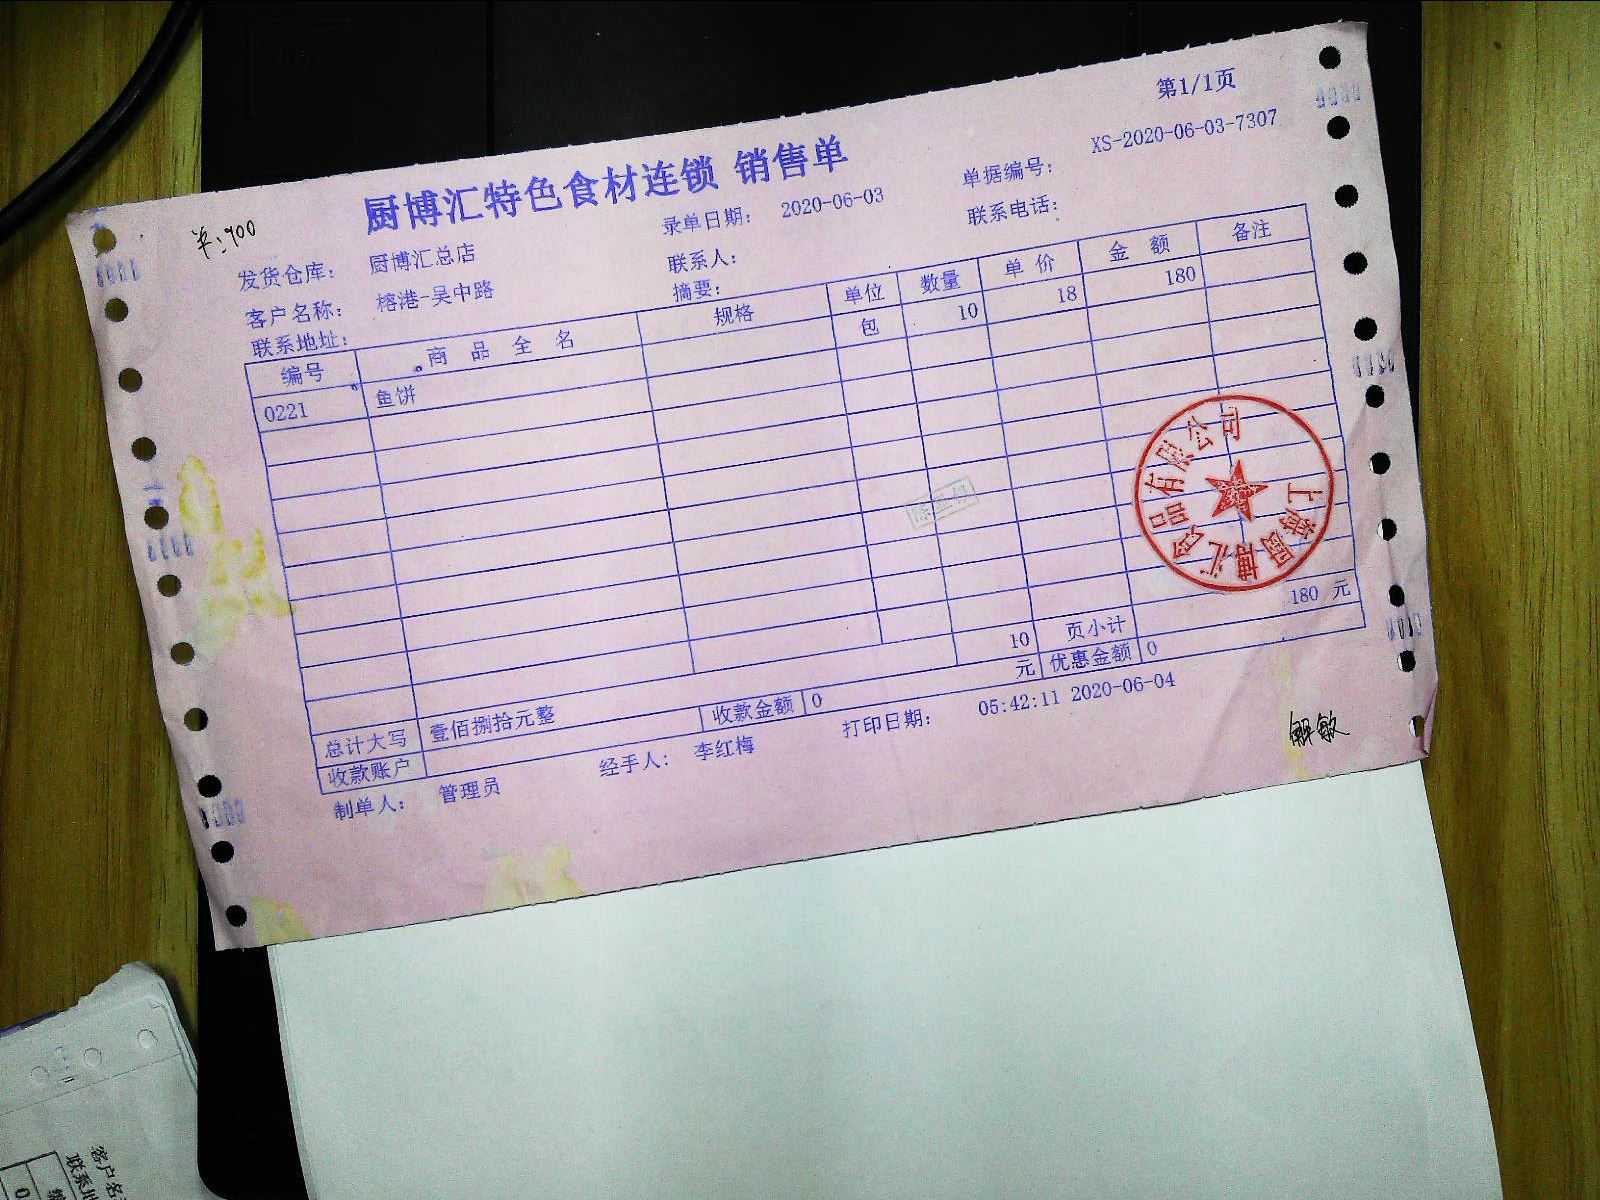 第1/1页
厨博汇特色食材连锁 销售单
单据编号： XS-2020-06-03-7307
半:900
录单日期： 2020-06-03
联系电话：
发货仓库： 厨博汇总店
联系人：
客户名称： 榕港-吴中路
摘要：
联系地址：
编号 商品全名 规格 单位 数量 单价 金额 备注
0221 鱼饼 包 10 18 180
上海厨博汇食品有限公司
10 页小计 180 元
总计大写 壹佰捌拾元整 收款金额 0 元 优惠金额 0
收款账户
制单人： 管理员 经手人： 李红梅 打印日期： 05:42:11 2020-06-04
解敏
客户名
联系地